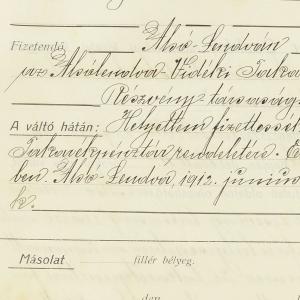 Fizetendő Alsó-Lendván
az Alsólendva-Vidéki Taka
Részvény-társaság
A váltó hátán: Helyettem fizettessék
Takarékpénztár rendeletére.
ben. Alsó-Lendva, 1912. június
k.
Másolat fillér bélyeg.
den